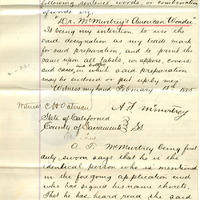 following sentence, words, or combination
of words viz:
"Dr. McMurtrey's American Wonder"
It being my intention to use the
said designation as my trade mark
for said preparation, and to print the
same upon all labels, wrappers, covers
and cases, in which said preparation
may be inclosed or put up by me.
Witness my hand February 18th
Witness A. F. McMurtrey
State of California } SS.
County of Sacramento
A. F. McMurtrey being first
duly sworn says that he is the
identical person who is mentioned
in the forgoing application and
who has signed his name thereto.
That he has heard read the said